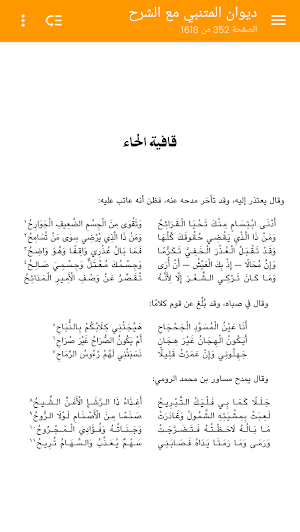 ديوان المتنبي مع الشرح
الصفحة 352 من 1618
قافية الحاء
وقال يعتذر إليه، وقد تأخر مدحه عنه، فظن أنه عاتب عليه:
أَدْنَى ابْتِسَامٍ مِنْكَ تَحْيَا الْقَرَائِحُ وَتَقْوَى مِنَ الْجِسْمِ الضَّعِيفِ الْجَوَارِحُ
وَمَنْ ذَا الَّذِي يَقْضِي حُقُوقَكَ كُلَّهَا وَمَنْ ذَا الَّذِي يُرْضِي سِوَى مَنْ تُسَامِحُ
وَقَدْ تَقْبَلُ الْعُذْرَ الْخَفِيَّ تَكَرُّمًا فَمَا بَالُ عُذْرِي وَاقِفًا وَهْوَ وَاضِحُ
وَإِنَّ مُحَالًا — إِذْ بِكَ الْعَيْشُ — أَنْ أُرَى وَجِسْمُكَ مُعْتَلٌّ وَجِسْمِيَ صَالِحُ
وَمَا كَانَ تَرْكِي الشِّعْرَ إِلَّا لِأَنَّهُ تُقَصِّرُ عَنْ وَصْفِ الْأَمِيرِ الْمَدَائِحُ
وقال في صباه، وقد بُلِّغ عن قوم كلامًا:
أَنَا عَيْنُ الْمُسَوَّدِ الْجَحْجَاحِ هَيَّجَتْنِي كِلَابُكُمْ بِالنُّبَاحِ
أَيَكُونُ الْهِجَانُ غَيْرَ هِجَانٍ أَمْ يَكُونُ الصُّرَاحُ غَيْرَ صُرَاحِ
جَهِلُونِي وَإِنْ عَمَرْتُ قَلِيلًا نَسَبَتْنِي لَهُمْ رُءُوسُ الرِّمَاحِ
وقال يمدح مساور بن محمد الرومي:
جَلَلًا كَمَا بِي فَلْيَكُ التَّبْرِيحُ أَغِذَاءُ ذَا الرَّشَإِ الْأَغَنِّ الشِّيحُ
لَعِبَتْ بِمِشْيَتِهِ الشَّمُولُ وَغَادَرَتْ صَنَمًا مِنَ الْأَصْنَامِ لَوْلَا الرُّوحُ
مَا بَالُهُ لَاحَظْتُهُ فَتَضَرَّجَتْ وَجَنَاتُهُ وَفُؤَادِيَ الْمَجْرُوحُ
وَرَمَى وَمَا رَمَتَا يَدَاهُ فَصَابَنِي سَهْمٌ يُعَذِّبُ وَالسِّهَامُ تُرِيحُ